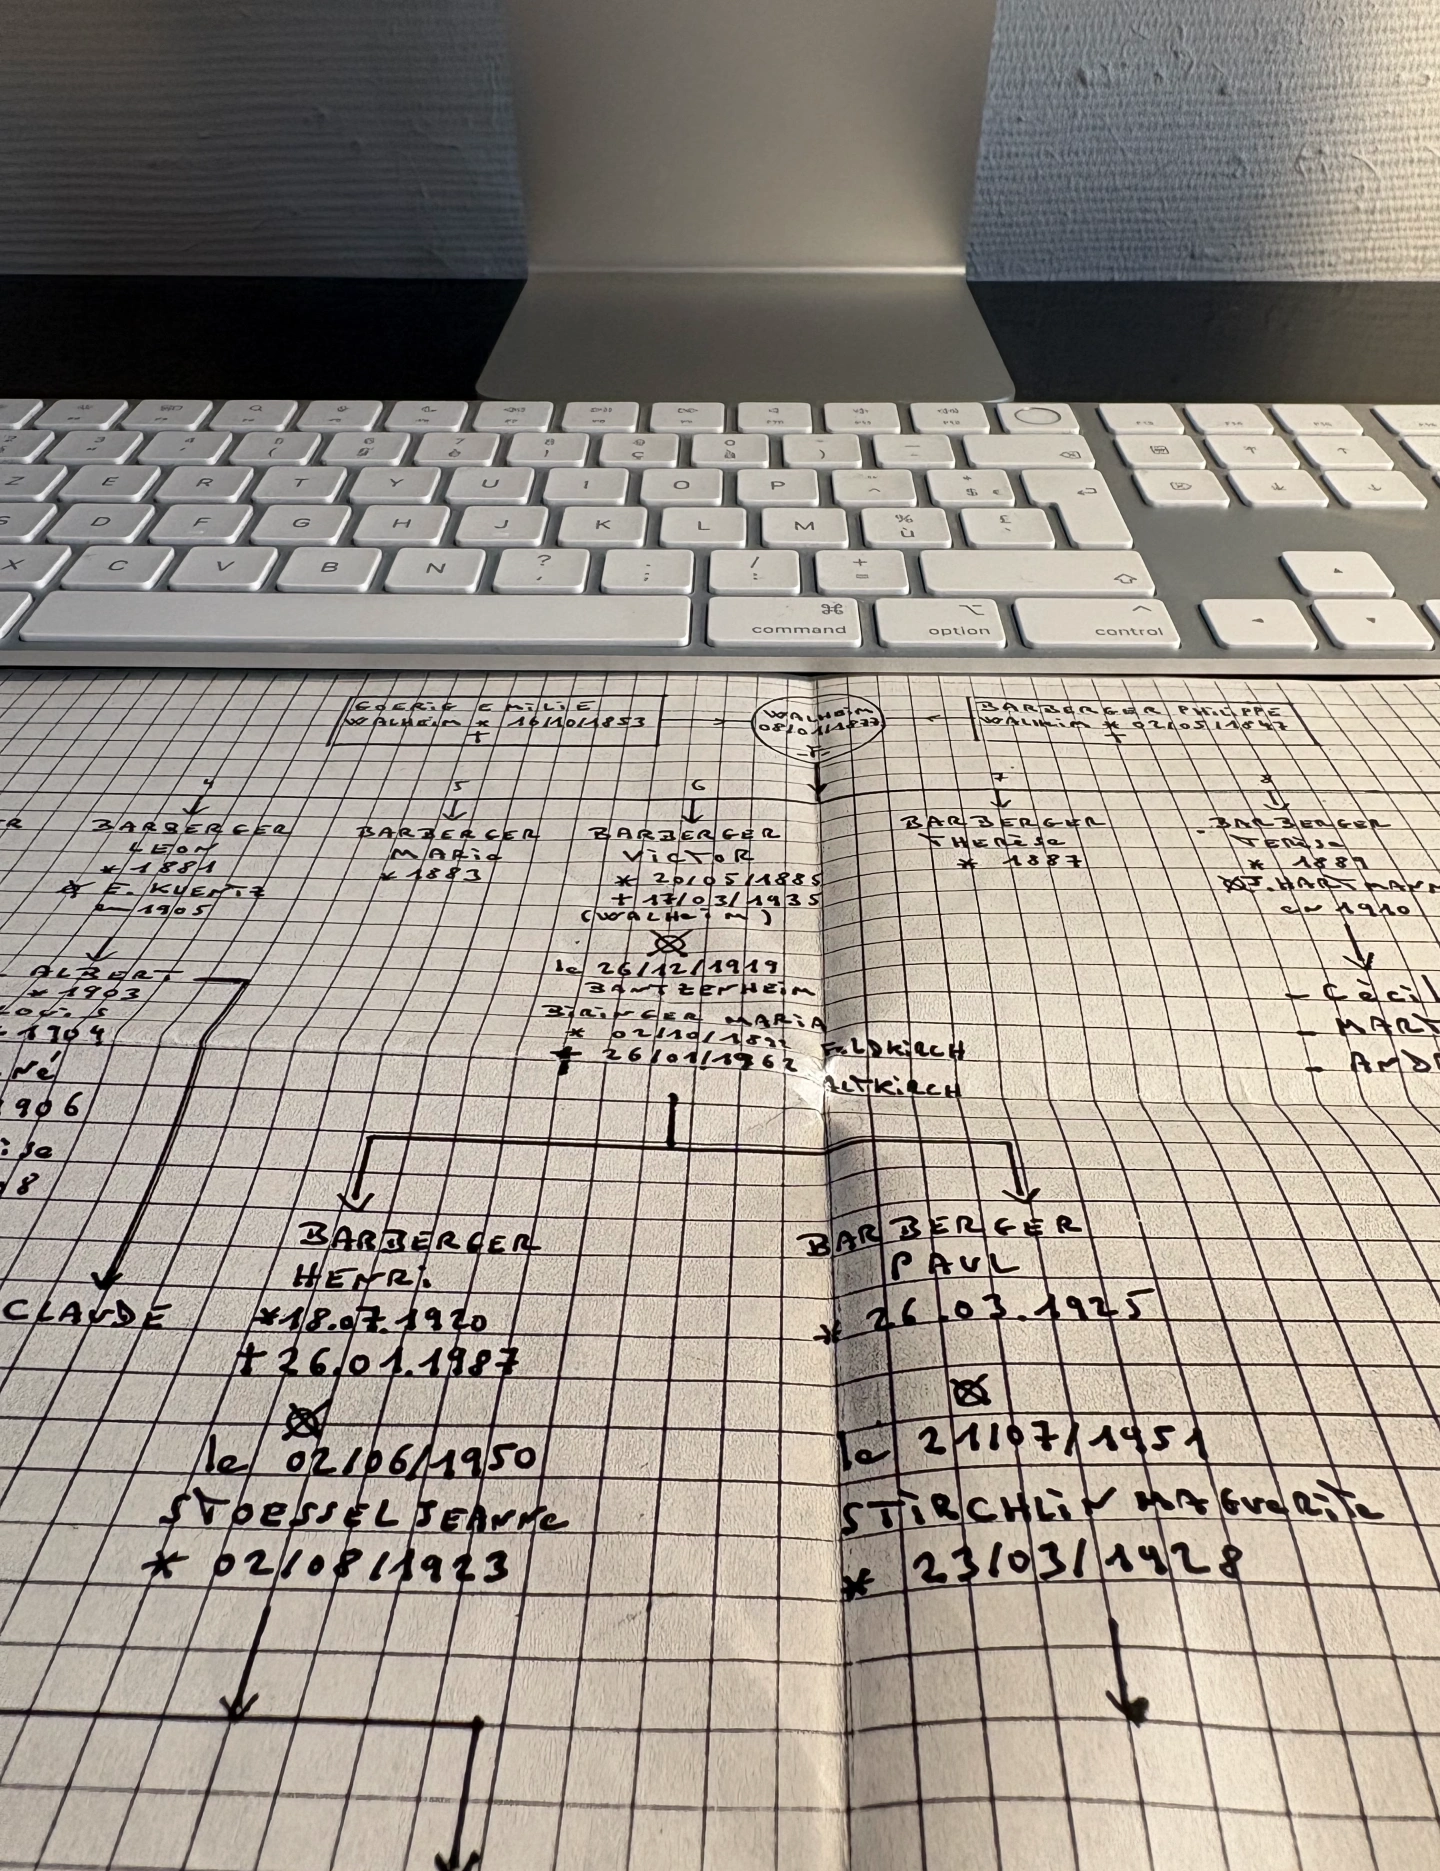 Z E R T Y U I O P
S D F G H J K L M
X C V B N
command option control
GOERIG EMILIE
WALHEIM * 10/10/1853
+
WALHEIM
BARBERGER PHILIPPE
WALHEIM * 02/05/1847
+
4
BARBERGER
LEON
* 1881
E. KUENTZ
en 1905
5
BARBERGER
MARIE
* 1883
6
BARBERGER
VICTOR
* 20/05/1885
+ 17/03/1935
(WALHEIM)
le 26/12/1919
BANTZENHEIM
BIRINGER MARIA
FELDKIRCH
+ 26/01/1962
ALTKIRCH
7
BARBERGER
THERÈSE
* 1887
8
BARBERGER
TERÈSE
* 1889
J. HARTMANN
en 1910
- CÈCIL
- MART
- AND
- ALBERT
* 1903
LOUIS
* 1904
né
906
ise
8
CLAUDE
BARBERGER
HENRI
*18.07.1920
+ 26.01.1987
le 02/06/1950
STOESSEL JEANNE
* 02/08/1923
BARBERGER
PAUL
* 26.03.1925
le 21/07/1951
STIRCHLIN MAGUERITE
* 23/03/1928